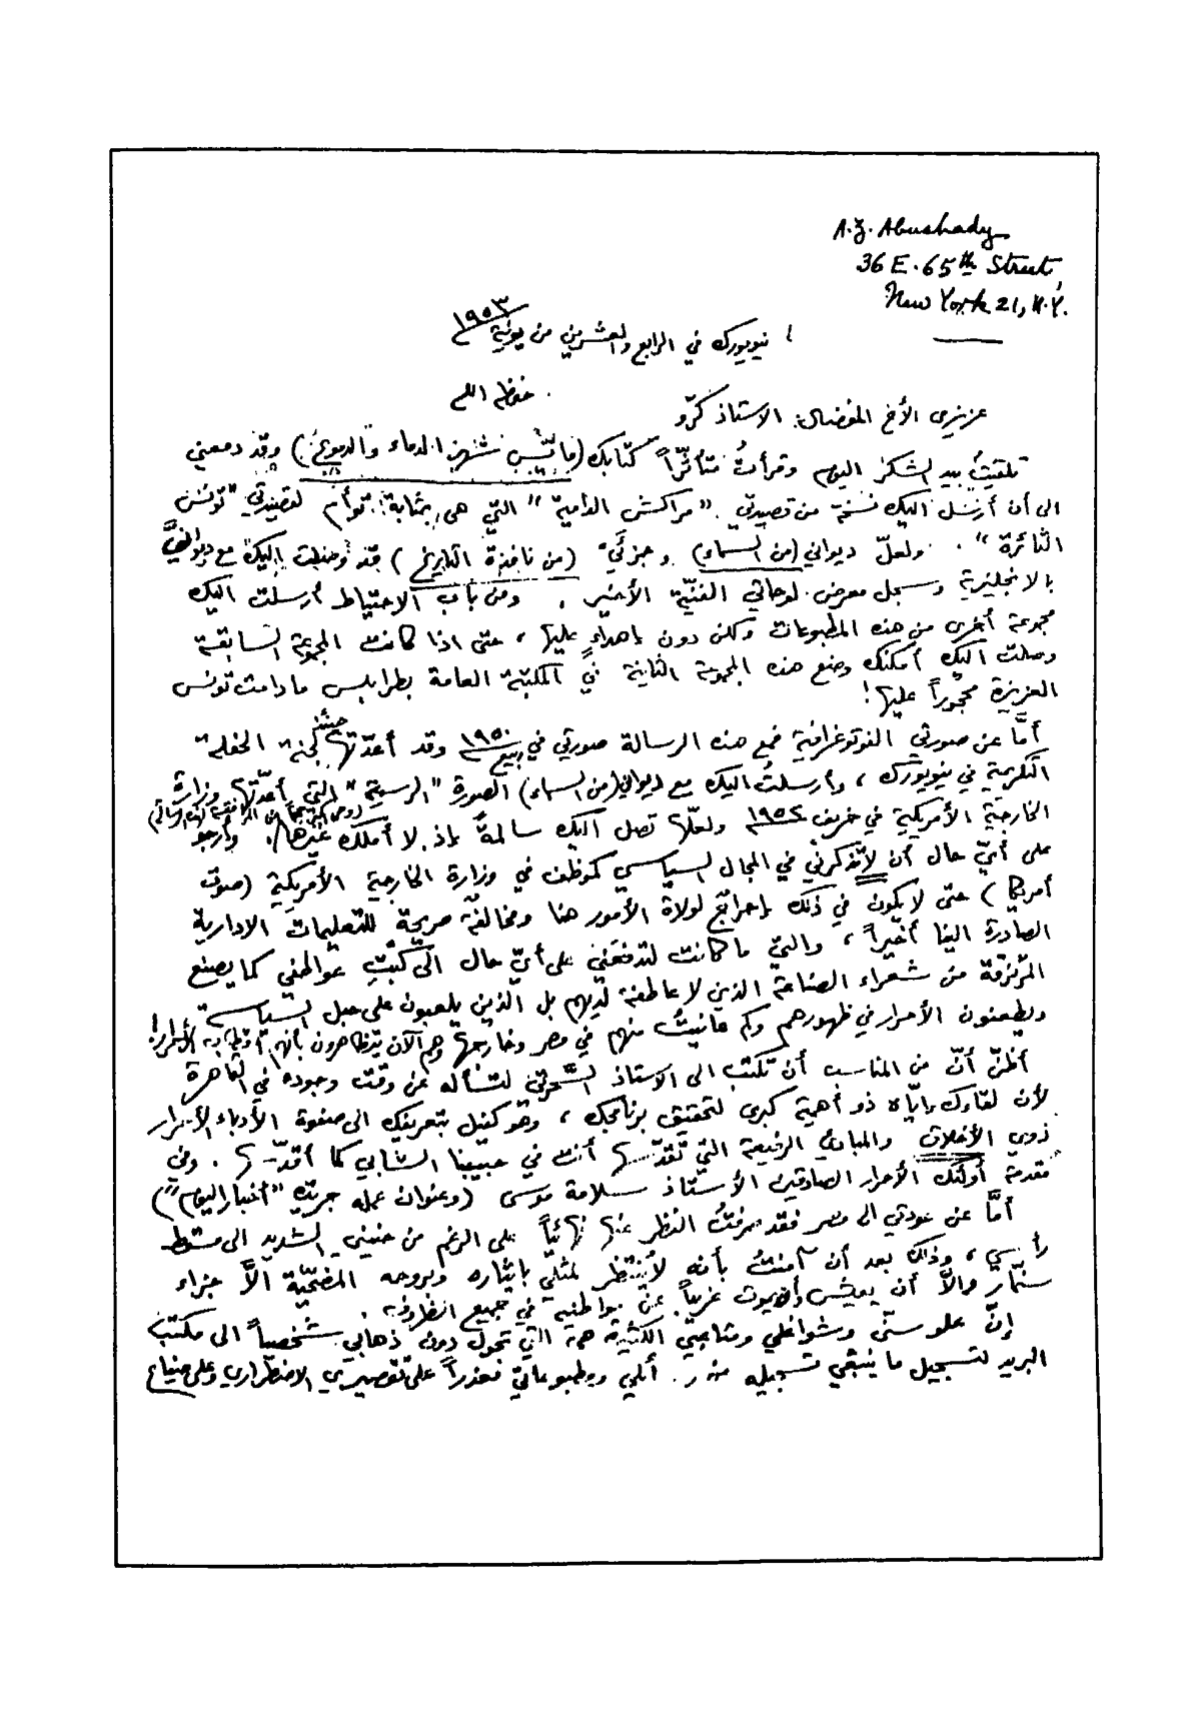 A. Z. Abushady
36 E. 65th Street,
New York 21, N.Y.
نيويورك في الرابع والعشرين من يونية ١٩٥٣
عزيزي الأخ المفضال الاستاذ كرّو حفظه الله
تلقيتُ بيد الشكر اليوم وقرأتُ متأثراً كتابك (مآتم شهر الدماء والدموع) وقد دفعني
الى أن أرسل اليك نسخة من قصيدتي "مراكش الدامية" التي هي بمثابة توأم لقصيدتي "تونس
الثائرة". ولعلّ ديواني (من السماء) وجزئَي (من نافذة التاريخ) قد وصلت اليك مع
بالانجليزية وسجل معرض لوحاتي الفنيّة الأخير. ومن باب الاحتياط أرسلت اليك
مجموعة أخرى من هذه المطبوعات ولكن دون إهداءٍ عليها، حتى اذا كانت المجموعة السابقة
وصلت اليك أمكنك وضع هذه المجموعة الثانية في المكتبة العامة بطرابلس ما دامت تونس
العزيزة محجوراً عليها!
أمّا عن صورتي الفوتوغرافية فمع هذه الرسالة صورتي في ربيع ١٩٥٠ وقد أعدّتها حينئذ لجنة الحفلة
التكريمية في نيويورك، وأرسلتُ اليك مع ديواني (من السماء) الصورة "الرسمية" التي أعدّتها وزارة
الخارجية الأمريكية في خريف ١٩٥٢ ولعلّها تصل اليك سالمةً إذ لا أملك غيرها. وأرجو
على أيّ حال أن لا تذكرني في المجال السياسي كموظف في وزارة الخارجية الأمريكية (صوت
أمريكا) حتى لا يكون في ذلك إحراجٌ لولاة الأمور هنا ومخالفة صريحة للتعليمات الادارية
الصادرة الينا أخيراً، والتي ما كانت لتدفعَني على أيّ حال الى كبت عواطفي كما يصنع
المرتزقة من شعراء الصناعة الذين لا عاطفة لديهم بل الذين يلعبون على حبل السياسة
ويطعنون الأحرار في ظهورهم وكم عانيتُ منهم في مصر وخارجها وهم الآن يتظاهرون بأنهم أقطاب الأحرار!
أظنّ أنّ من المناسب أن تكتب الى الاستاذ السَّحرتي لتسأله عن وقت وجوده في القاهرة
لأن لقاءك إيّاه ذو أهمية كبرى لتحقيق برنامجك، وهو كفيل بتعريفك الى صفوة الأدباء الأحرار
ذوي الأخلاق والمبادئ الرفيعة التي تقدّسها أنت في حبيبنا الشابي كما أقدّسها. وفي
مقدمة أولئك الأحرار الصادقين الأستاذ سلامة موسى (وعنوان عمله جريدة "أخبار اليوم")
أمّا عن عودتي الى مصر فقد صرفتُ النظر عنها نهائياً على الرغم من حنيني الشديد الى مسقط
رأسي، وذلك بعد أن آمنتُ بأنه لا يُنتظر لمثلي بإيثاره وبروحه المضحّية الاّ جزاء
سنّمار والاّ أن يعيش وأن يموت غريباً عن مواطنيه في جميع الظروف.
إنّ علوّ سنّي وشواغلي ومتاعبي الكثيرة هي التي تحول دون ذهابي شخصياً الى مكتب
البريد لتسجيل ما ينبغي تسجيله من رسائلي ومطبوعاتي فعذراً على تقصيري الاضطراري وعلى ضياع